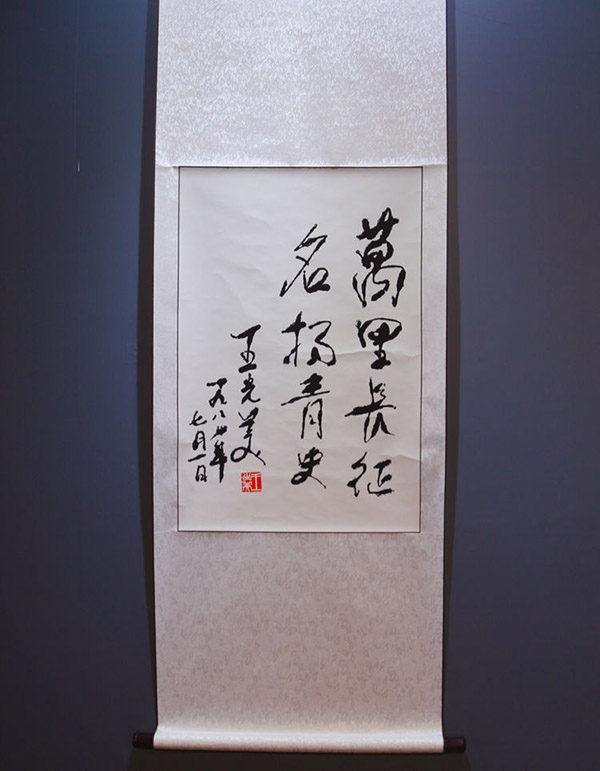 萬里長征
名揚青史
王光美
一九八年
七月一日